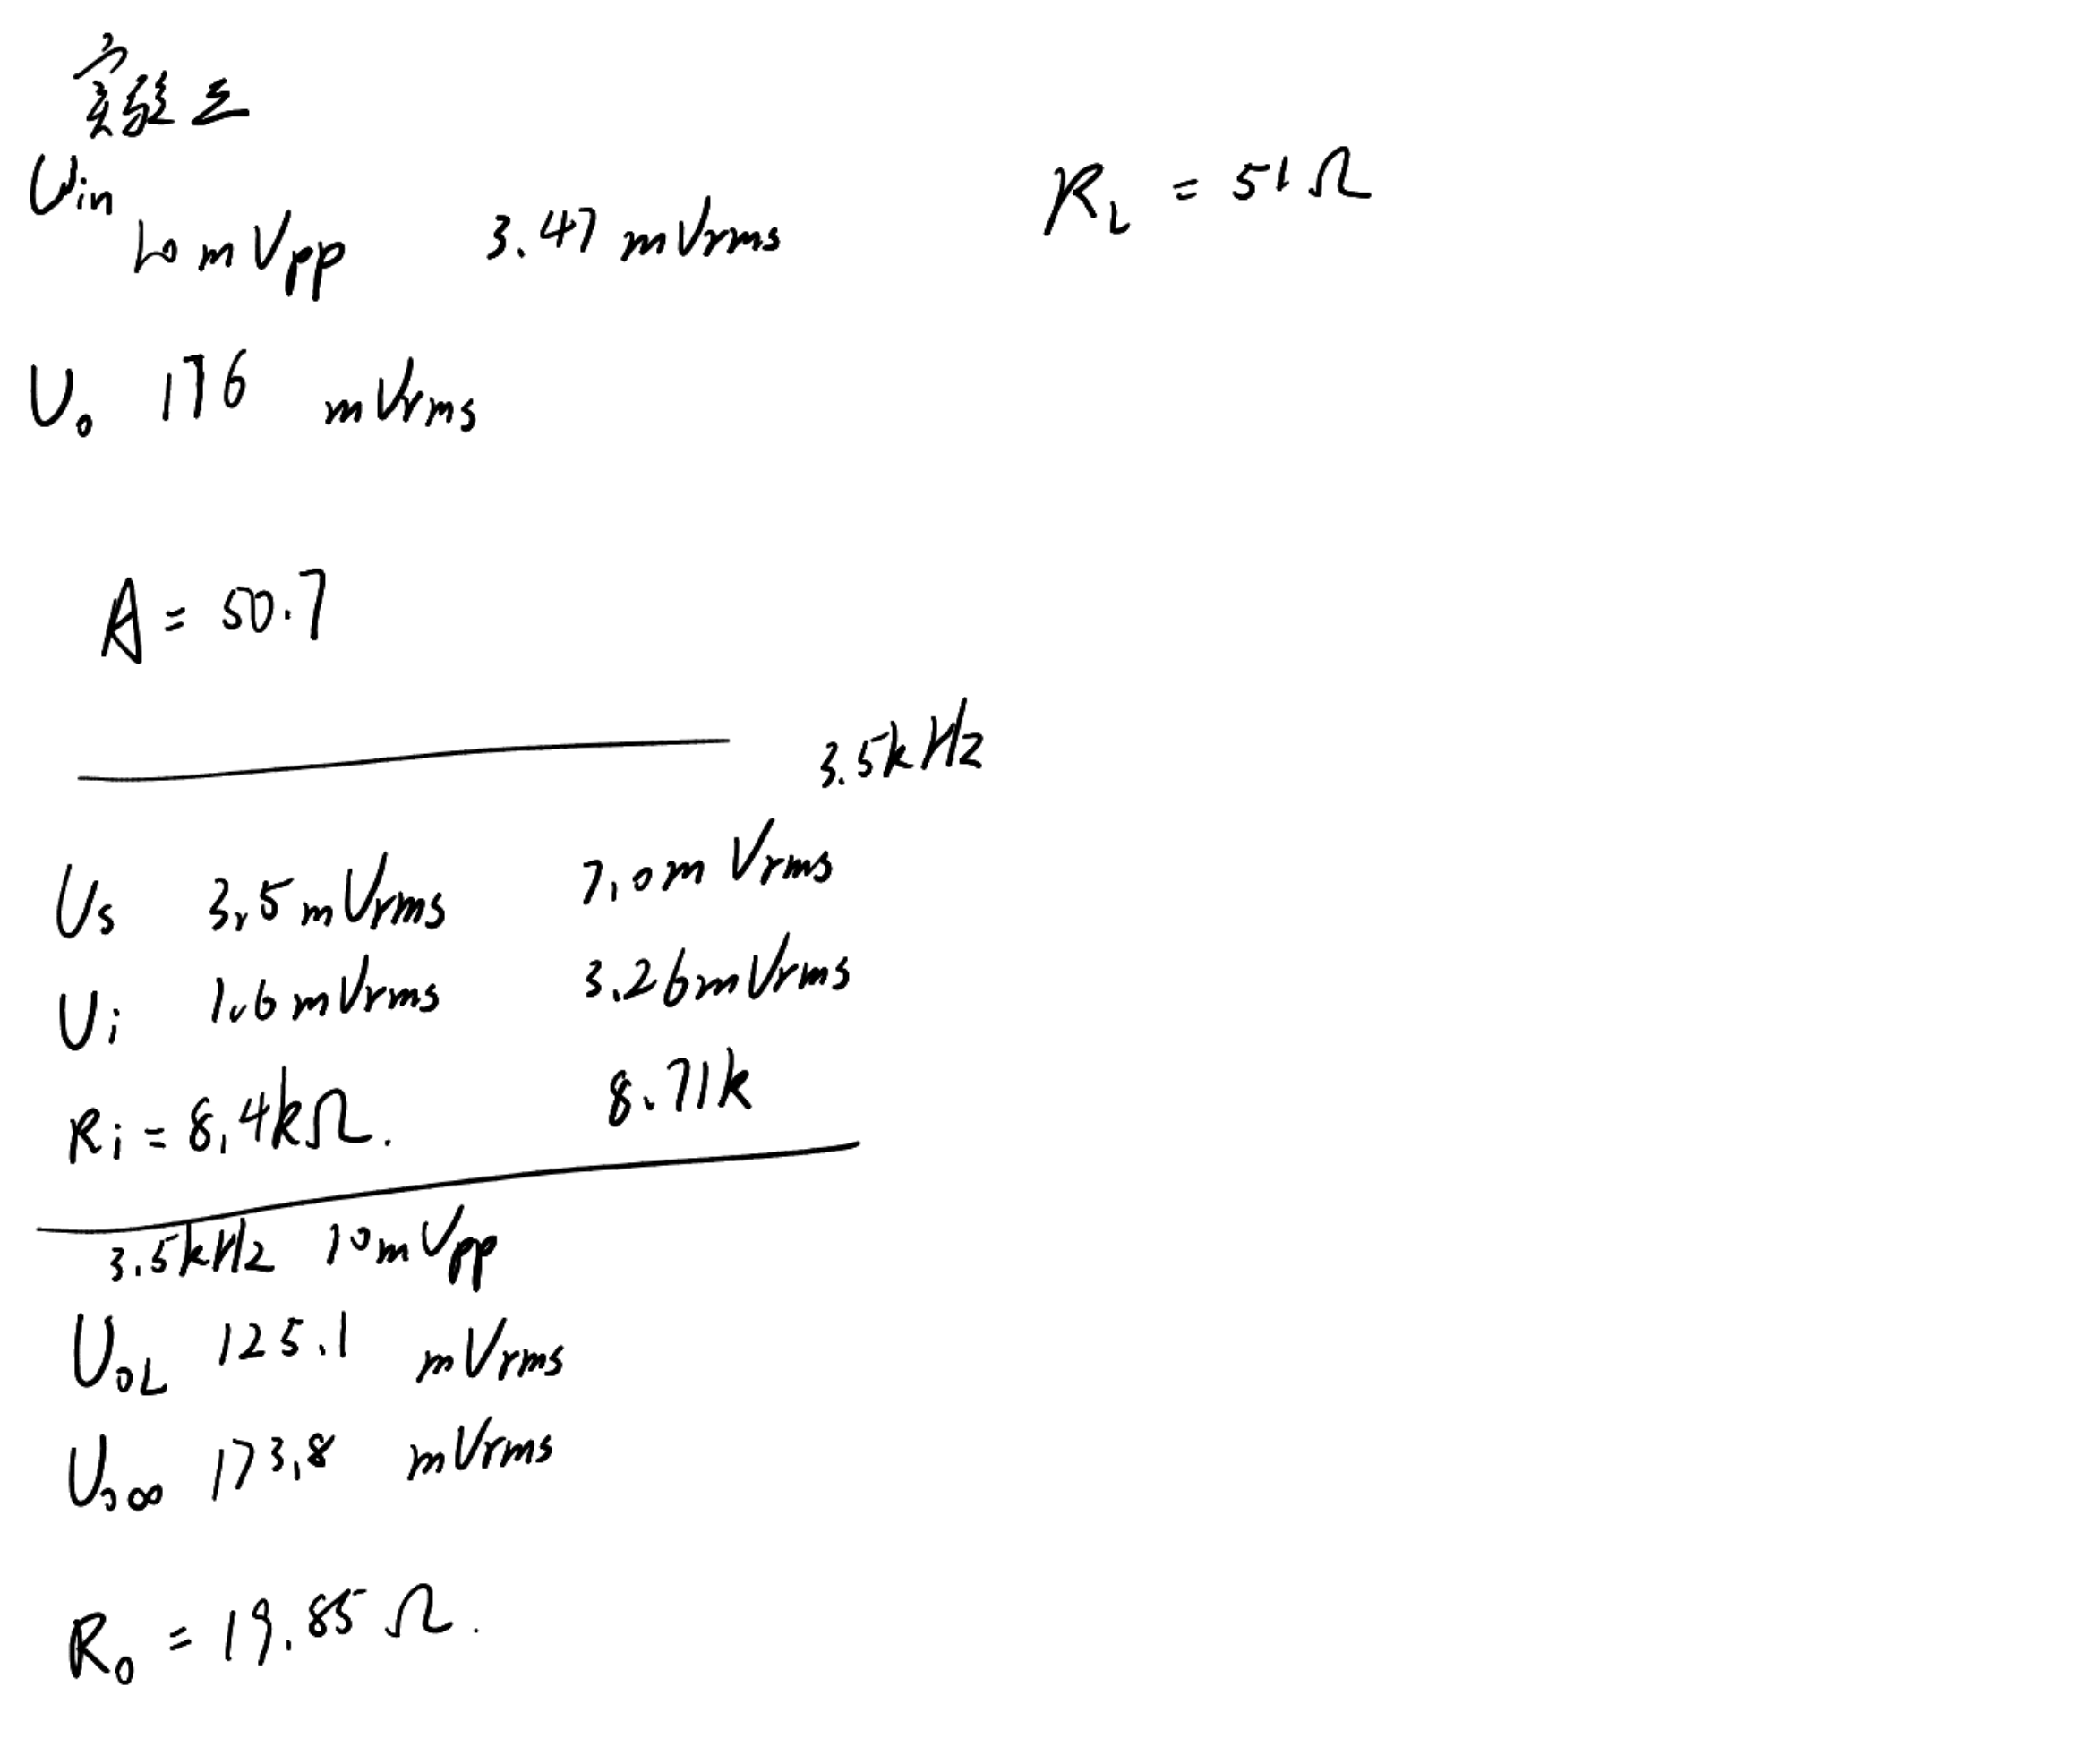 实验三
Uin
10mVpp 3.47 mVrms
RL = 51Ω
Uo 176 mVrms
A = 50.7
3.5kHz
Us 3.5mVrms 7.0mVrms
Ui 1.6mVrms 3.26mVrms
Ri = 8.4kΩ. 8.71k
3.5kHz 10mVpp
UoL 125.1 mVrms
Uo∞ 173.8 mVrms
Ro = 19.85Ω.